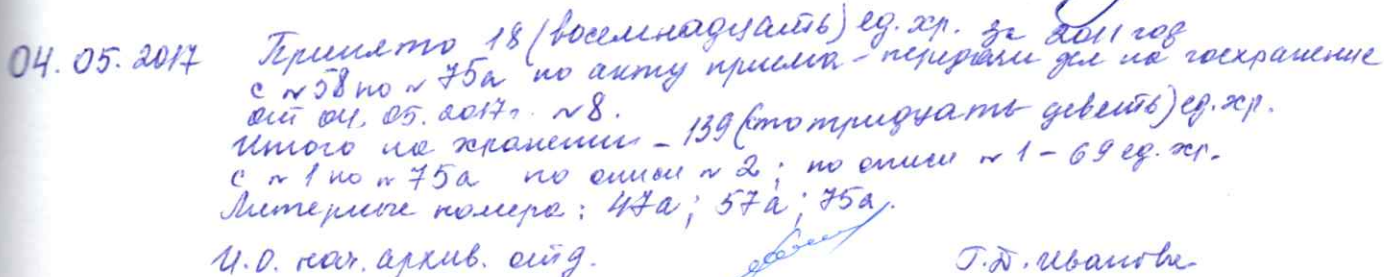 04.05.2017 Принято 18 (восемнадцать) ед. хр. за 2011 год
с №58 по №75а по акту приема-передачи дел на госхранение
от 04.05.2017г. №8.
Итого на хранении - 139 (сто тридцать девять) ед. хр.
с №1 по №75а по описи №2; по описи №1 - 69 ед. хр.
Литерные номера: 47а; 57а; 75а.
И.О. нач. архив. отд. Иванова